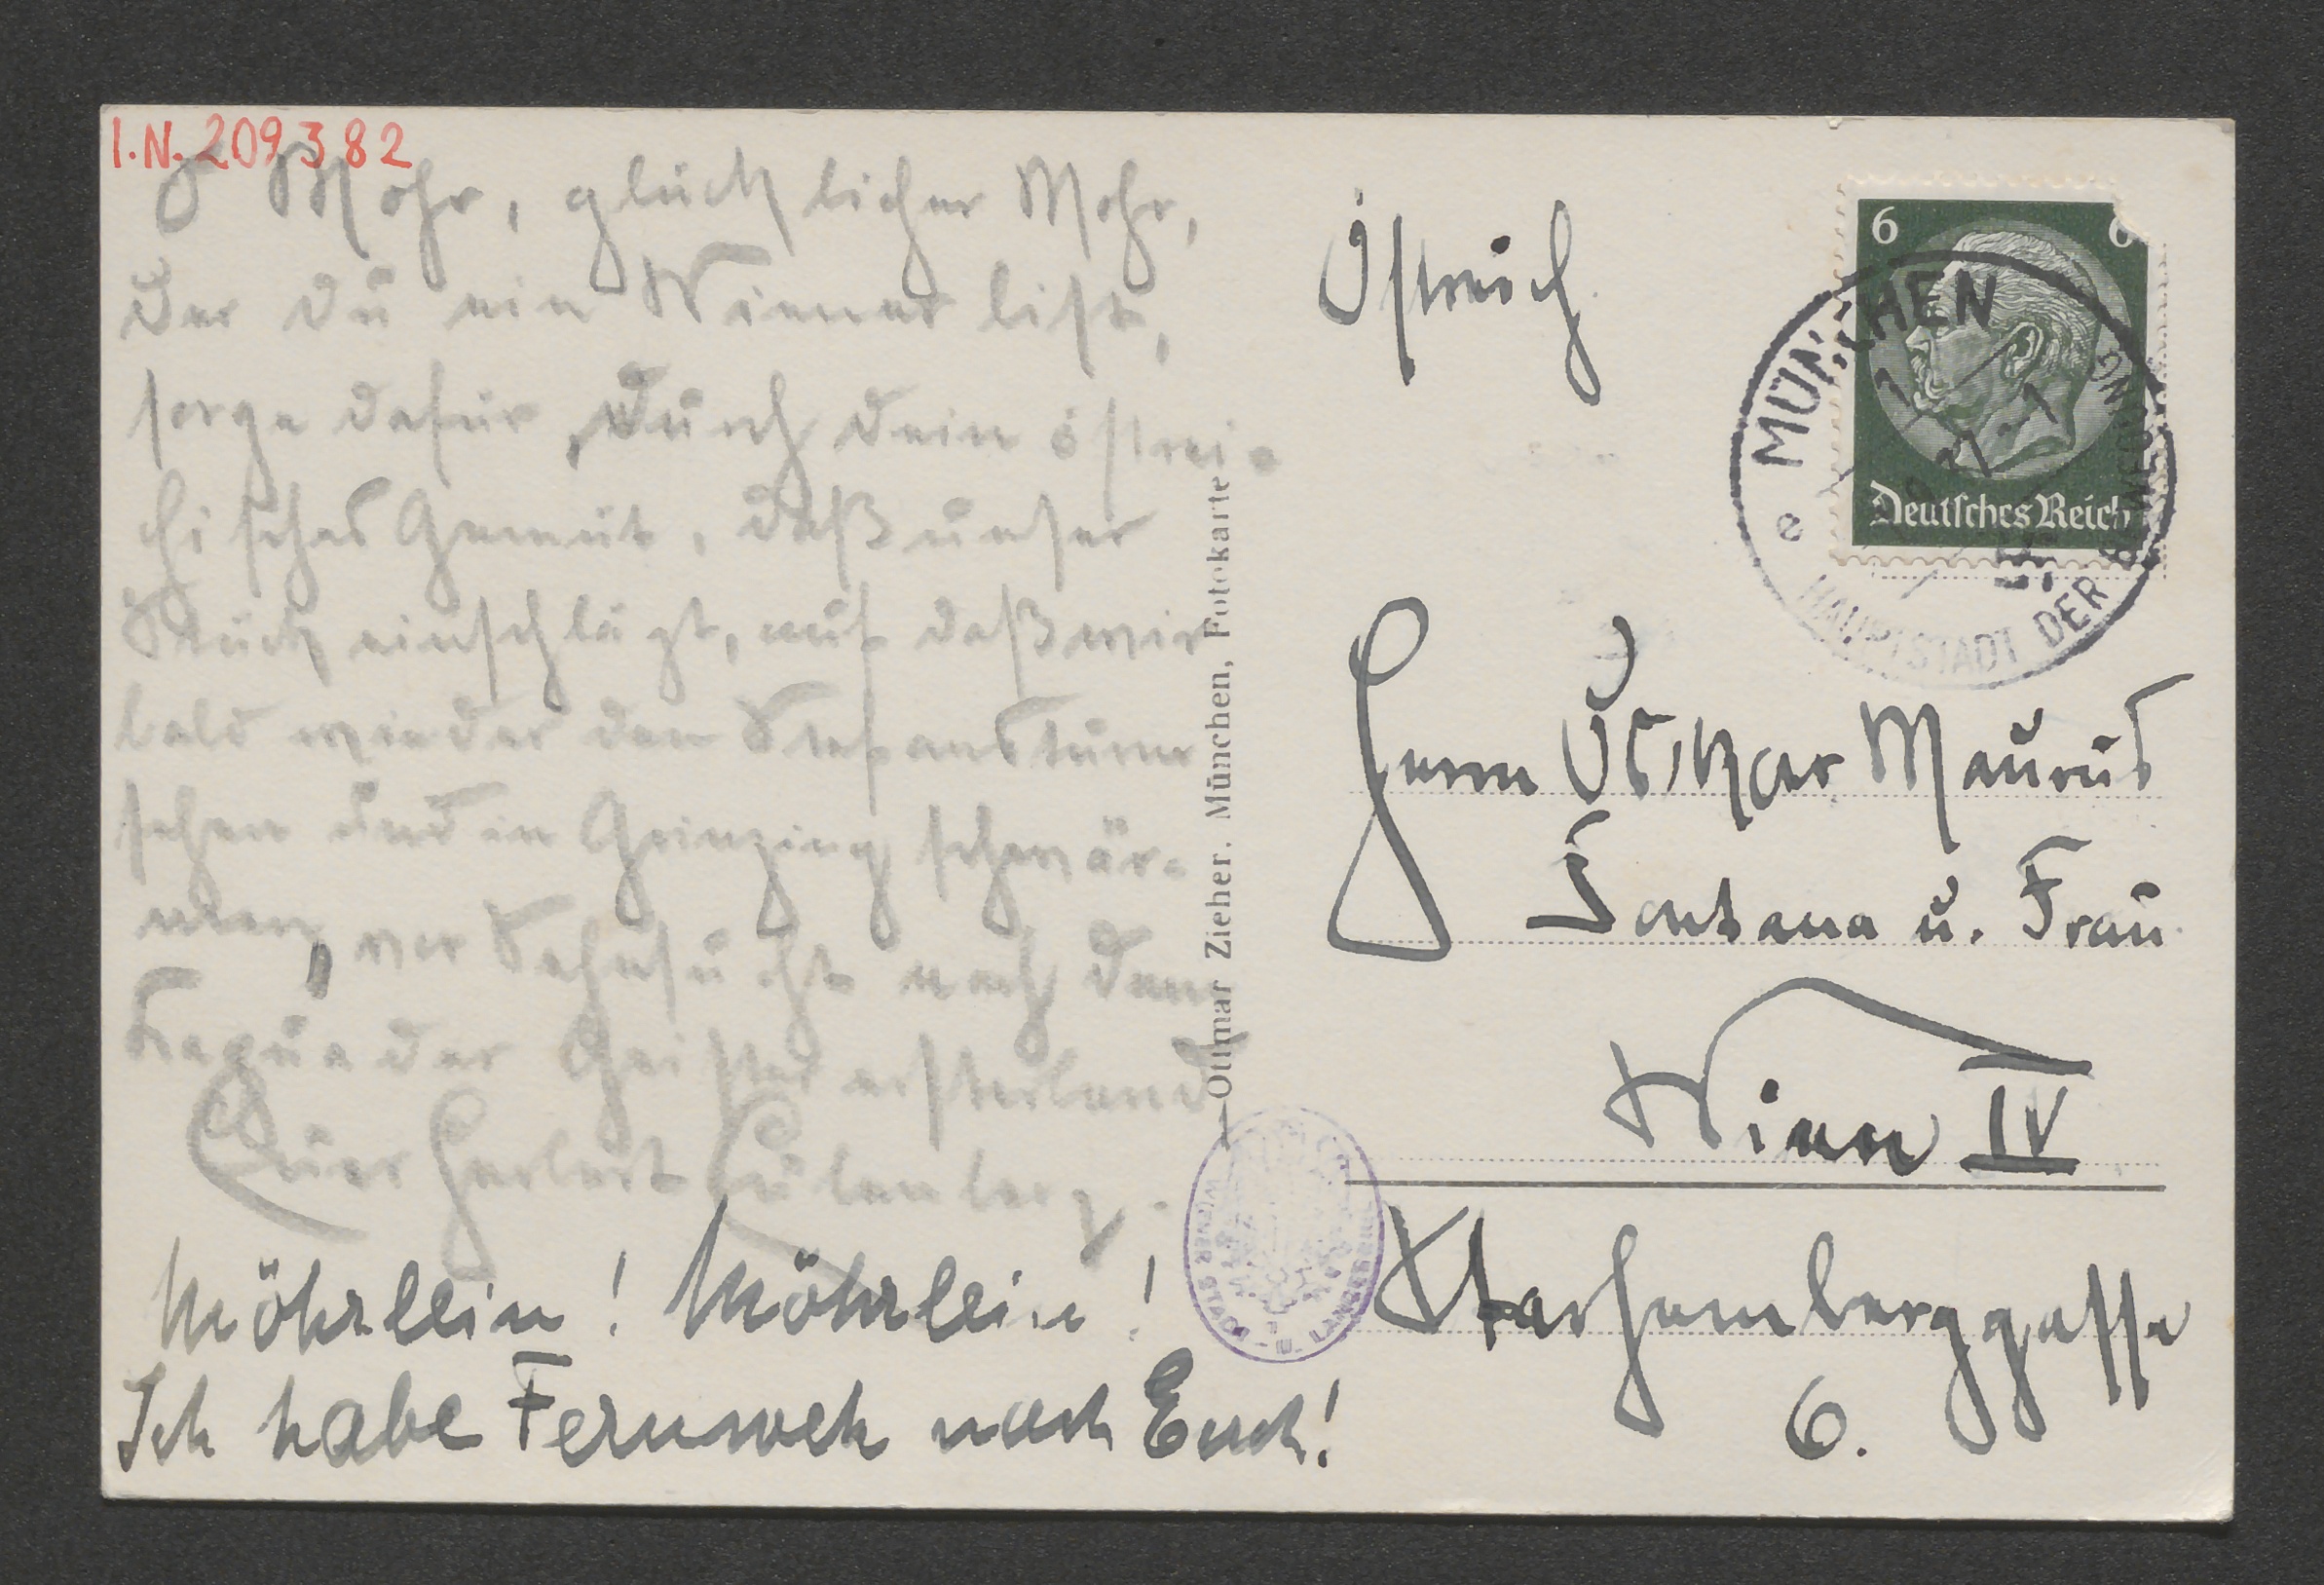 I.N. 209382
O Mohr, glücklicher Mohr,
Der du ein Wiener bist,
sorge dafür, durch dein östrei-
chisches Gemüt, daß unser
Stück einschlägt, auf daß wir
bald wieder den Stefansturm
sehen und in Grinzing schwär-
men, vor Sehnsucht nach dem
Capua der Geister ersterbend
Euer Herbert Eulenberg.
Möhrlein! Möhrlein!
Ich habe Fernweh nach Euch!
Ottmar Zieher, München, Fotokarte
Östreich
6 6
Deutsches Reich
MÜNCHEN
HAUPTSTADT DER BEWEGUNG
e
Herrn Oskar Maurus
Fontana u. Frau
Wien IV
Starhemberggasse
6.
WIENER STADT- U. LANDESBIBL.